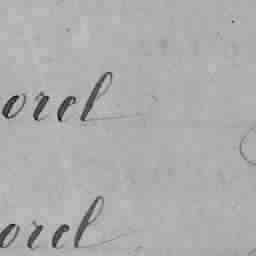 orel
orel